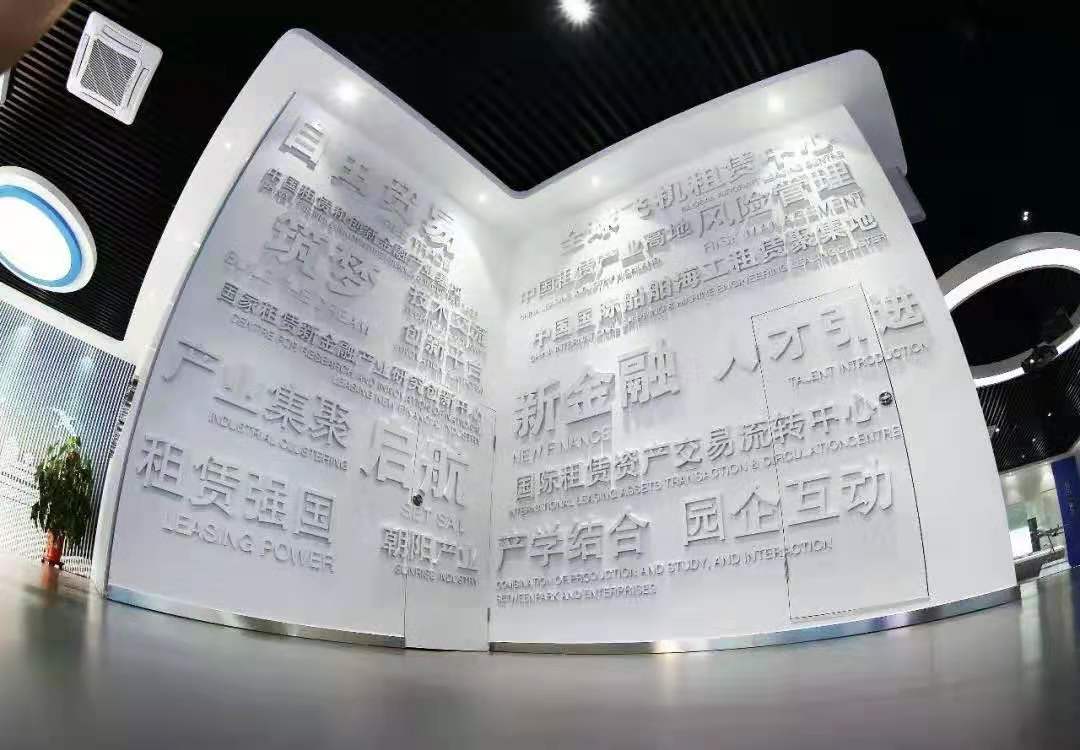 筑梦
国家租赁新金融产业研究创新中心
CENTRE FOR RESEARCH AND INNOVATION OF NATIONAL
LEASING NEW FINANCIAL INDUSTRY
产业集聚
INDUSTRIAL CLUSTERING
启航
SET SAIL
租赁强国
LEASING POWER
朝阳产业
SUNRISE INDUSTRY
全球飞机租赁中心
中国租赁产业高地
风险管理
RISK MANAGEMENT
中国国际船舶海工租赁聚集地
新金融
NEW FINANCE
人才引进
TALENT INTRODUCTION
国际租赁资产交易流转中心
INTERNATIONAL LEASING ASSETS TRANSACTION & CIRCULATION CENTRE
产学结合
园企互动
COMBINATION OF PRODUCTION AND STUDY, AND INTERACTION
BETWEEN PARK AND ENTERPRISES